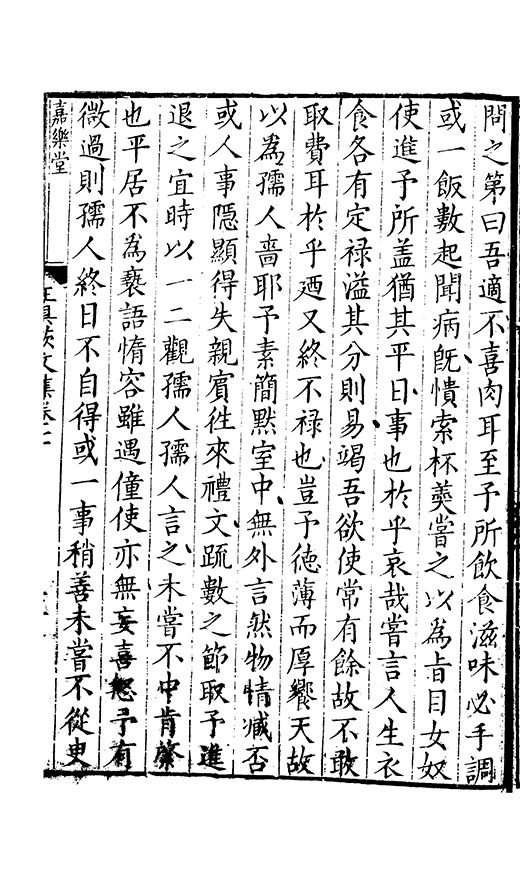 問之第曰吾適不喜肉耳至予所飲食滋味必手調
或一飯數起聞病旣憒索杯羮嘗之以為旨目女奴
使進予所盖猶其平日事也於乎哀哉嘗言人生衣
食各有定禄溢其分則易竭吾欲使常有餘故不敢
取費耳於乎廼又終不禄也豈予德薄而厚饗天故
以為孺人嗇耶予素簡黙室中無外言然物情臧否
或人事隠顯得失親賓徃來禮文疏數之節取予進
退之宜時以一二觀孺人孺人言之未嘗不中肯綮
也平居不為褻語惰容雖遇僮使亦無妄喜怒予有
微過則孺人終日不自得或一事稍善未嘗不從臾
嘉樂堂
文集卷二